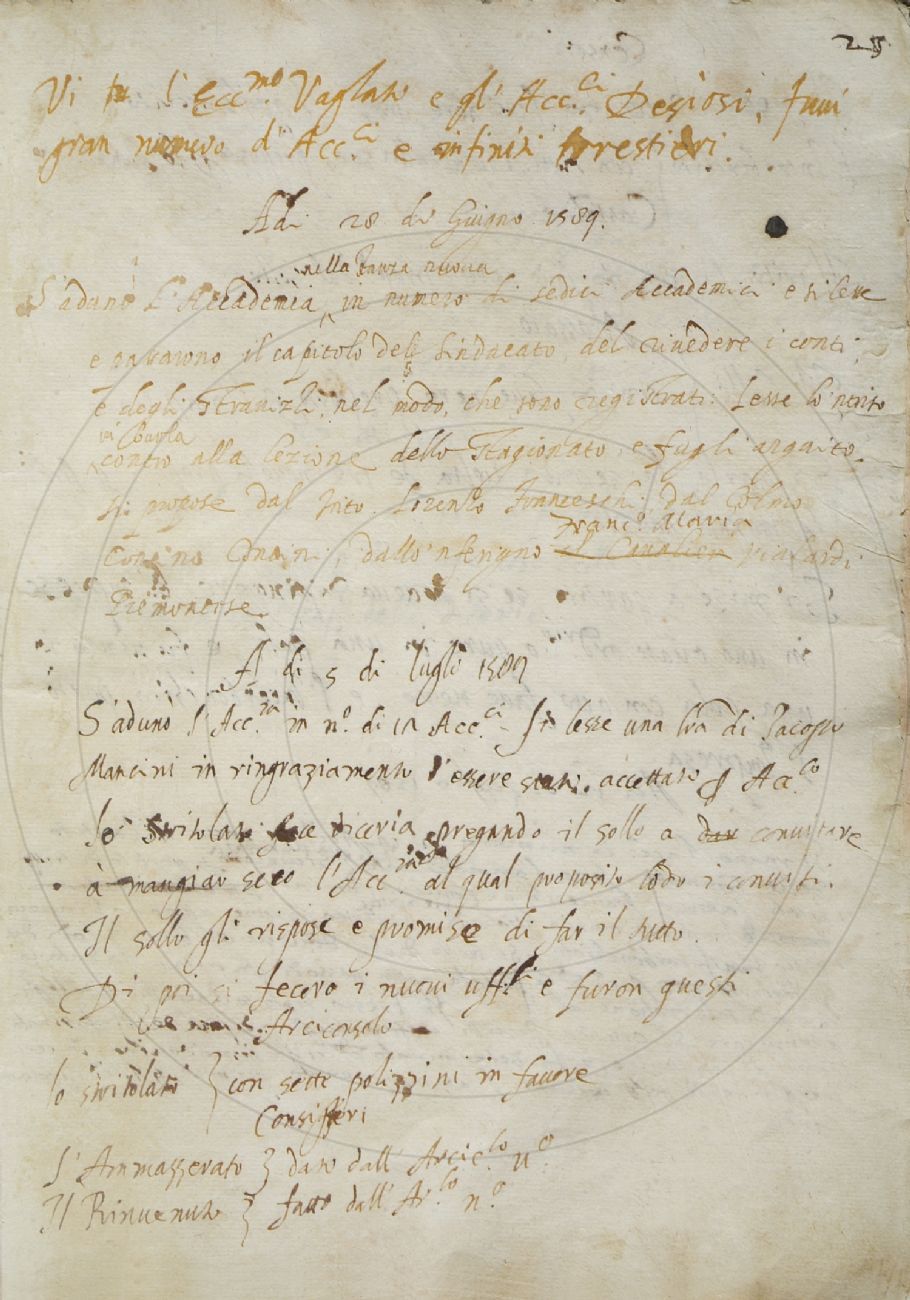 25
Vi fu l' Ecc.mo Vagliati e gl' Acc.ci Desiosi, fuui
gran numero d' Acc.ci e infiniti forestieri.
Adi 28 di Giugno 1589.
nella stanza nuoua
S'adunò l'Accademia, in numero di sedici Accademici e si lesse
e passarono il capitolo del Sindacato, del riuedere i conti
e degli Strauizzi, nel modo, che sono registrati. Lesse lo'nferito
contro alla lezione dello Stagionato, e fugli arguito.
Si propose dal Trito Lorenzo Franceschi, dal
Franc.o Maria
dallo'nferigno il Caualier Vialardi
Piemontese
A di 5 di luglio 1589
S'adunò l'Acc.ia in n.o di Acc.ci Si lesse una lra di Jacopo
Mancini in ringraziamento d'essere stato accettato p Acc.co
Lo Stritolato fece diceria pregando il sollo a dar conuitare
à mangiar seco l'Acc.ia al qual proposito lodò i conuiti.
Il sollo gli rispose e promise di far il tutto.
Di poi si fecero i nuoui uffizi e furon questi
Arciconsolo
lo stritolato } con sette polizzini in fauore
Consiglieri
L'Ammazzerato } dato dall' Arcic.lo n.o
Il Rinuenuto } fatto dall' Ar.lo n.o